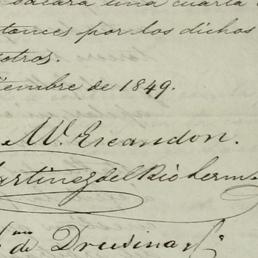 sacará una cuarta
tonces por los dichos
otros.
iembre de 1849.
M. Escandon.
artinez del Rio herm
de Drusina